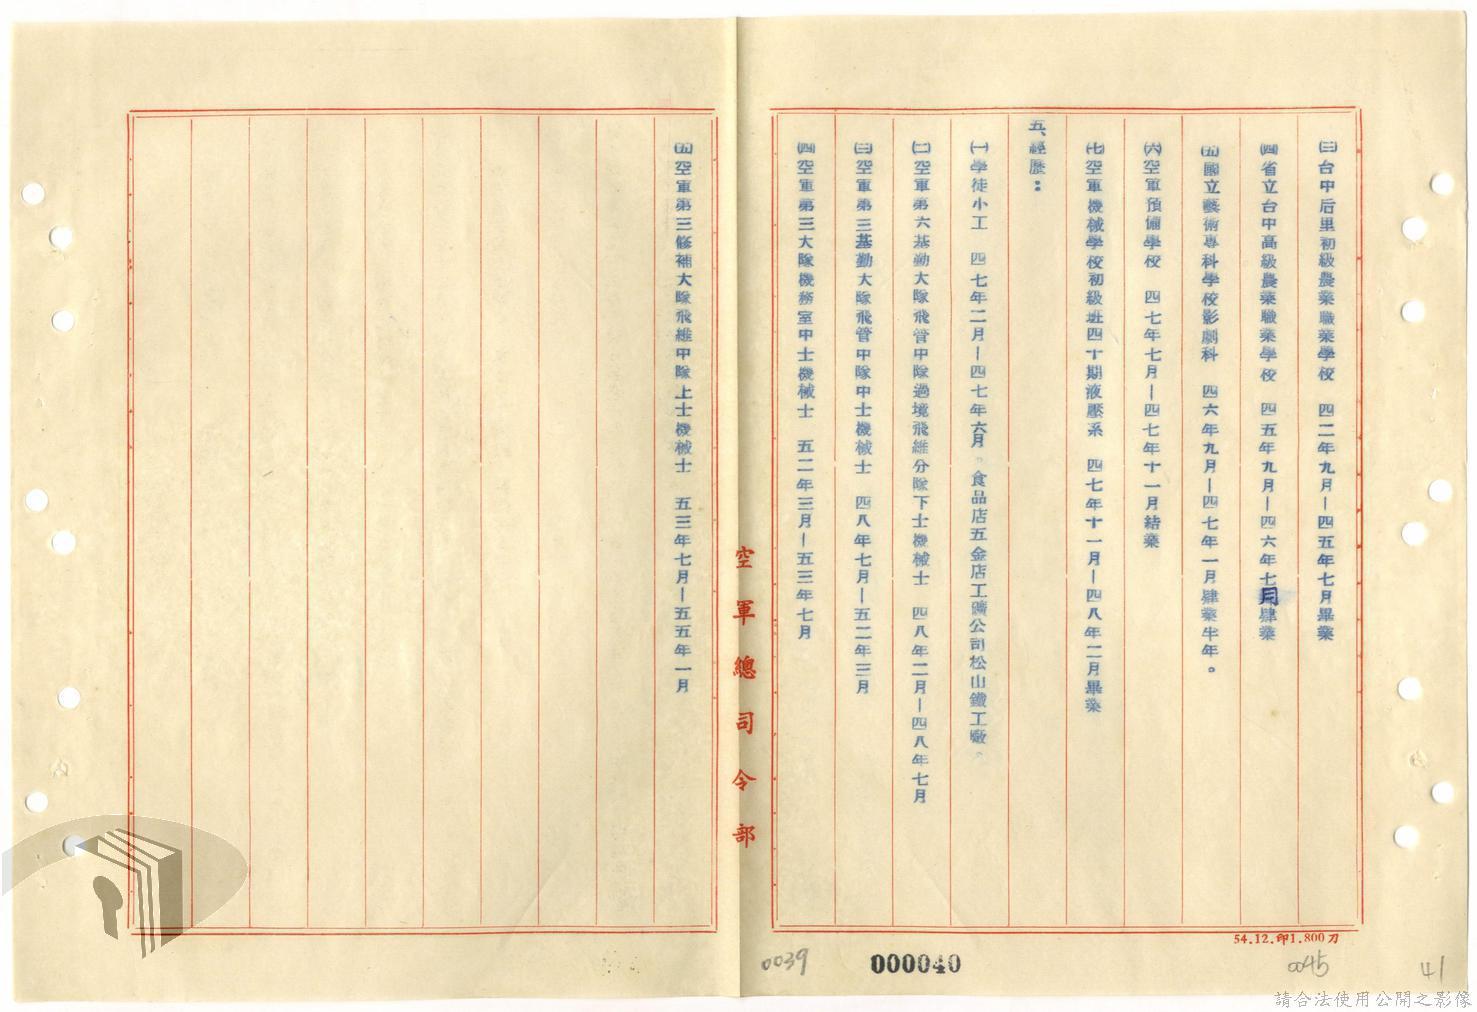 ㈢台中后里初級農業職業學校　四二年九月—四五年七月畢業
㈣省立台中高級農業職業學校　四五年九月—四六年七月肄業
㈤國立藝術專科學校影劇科　四六年九月—四七年一月肄業半年。
㈥空軍預備學校　四七年七月—四七年十一月結業
㈦空軍機械學校初級班四十期液壓系　四七年十一月—四八年二月畢業
五、經歷：
㈠學徒小工　四七年二月—四七年六月。食品店五金店工礦公司松山鐵工廠。
㈡空軍第六基勤大隊飛管中隊過境飛維分隊下士機械士　四八年二月—四八年七月
㈢空軍第三基勤大隊飛管中隊中士機械士　四八年七月—五二年三月
㈣空軍第三大隊機務室中士機械士　五二年三月—五三年七月
空軍總司令部
㈤空軍第三修補大隊飛維中隊上士機械士　五三年七月—五五年一月
54.12.印1.800刀
0039
000040
0045
41
請合法使用公開之影像